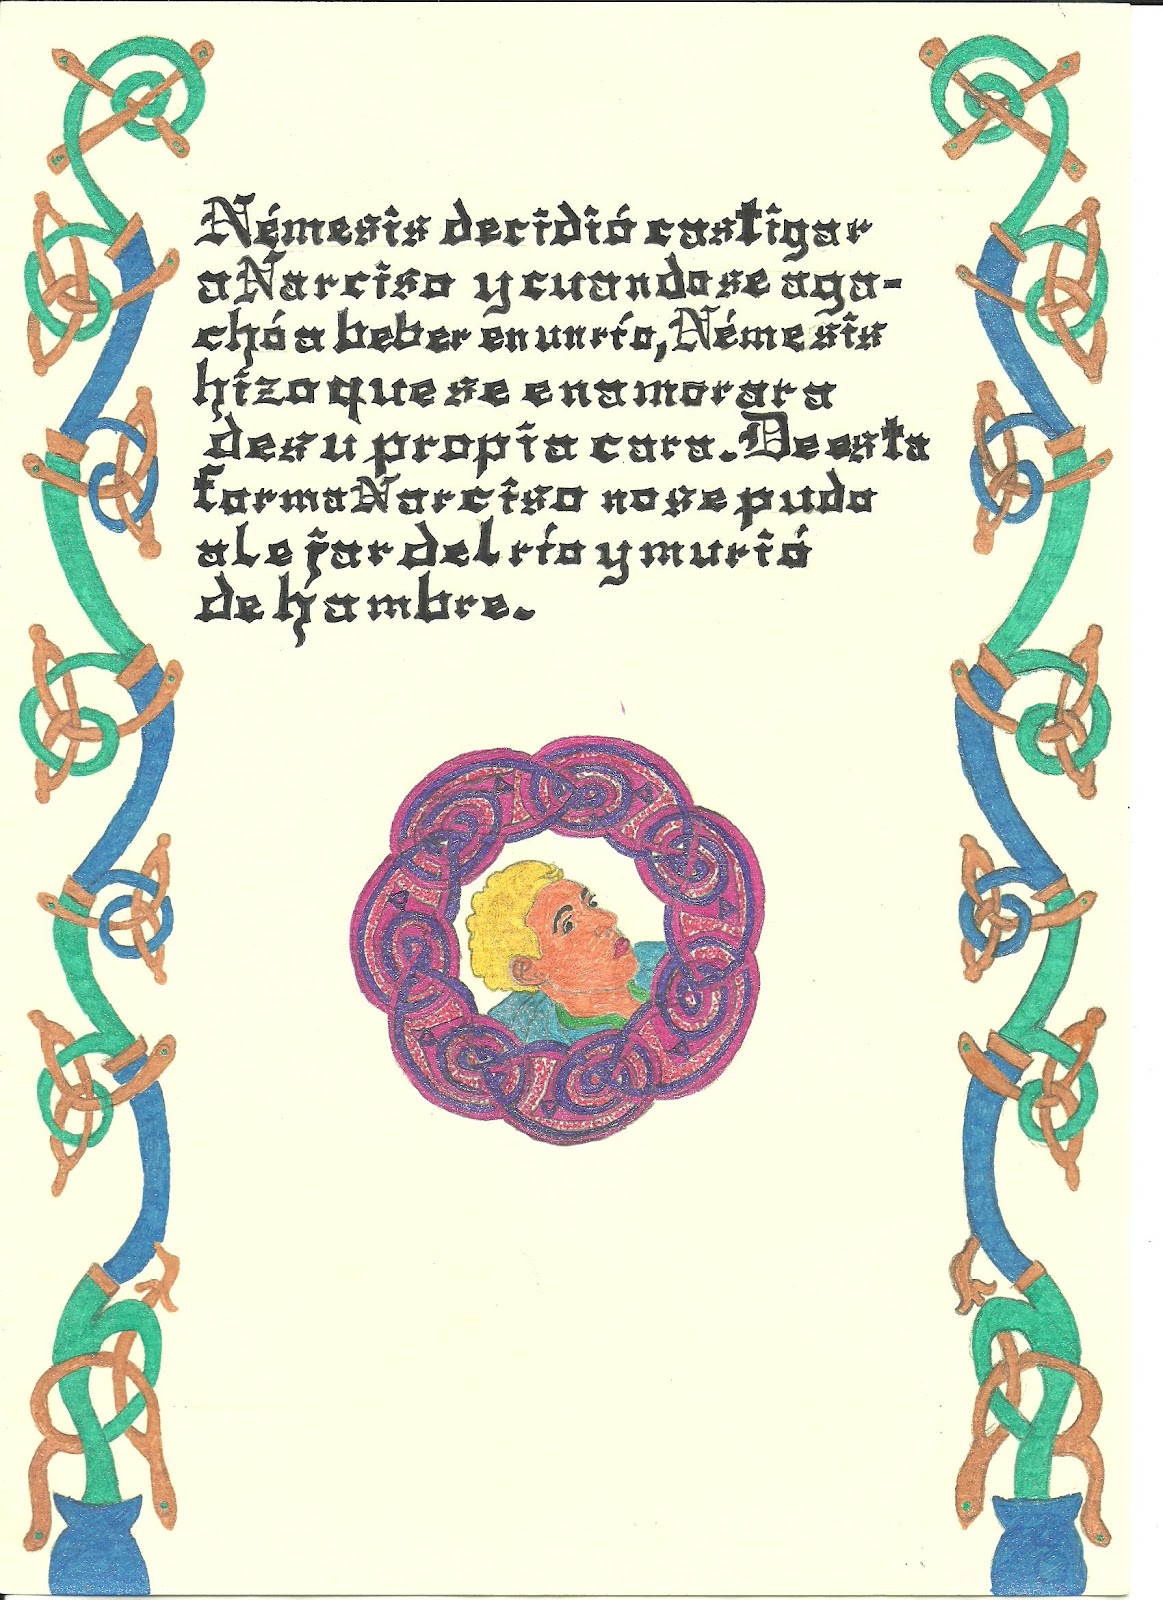 Némesis decidió castigar
a Narciso y cuando se aga-
chó a beber en un río, Némesis
hizo que se enamorara
de su propia cara. De esta
forma Narciso no se pudo
alejar del río y murió
de hambre.